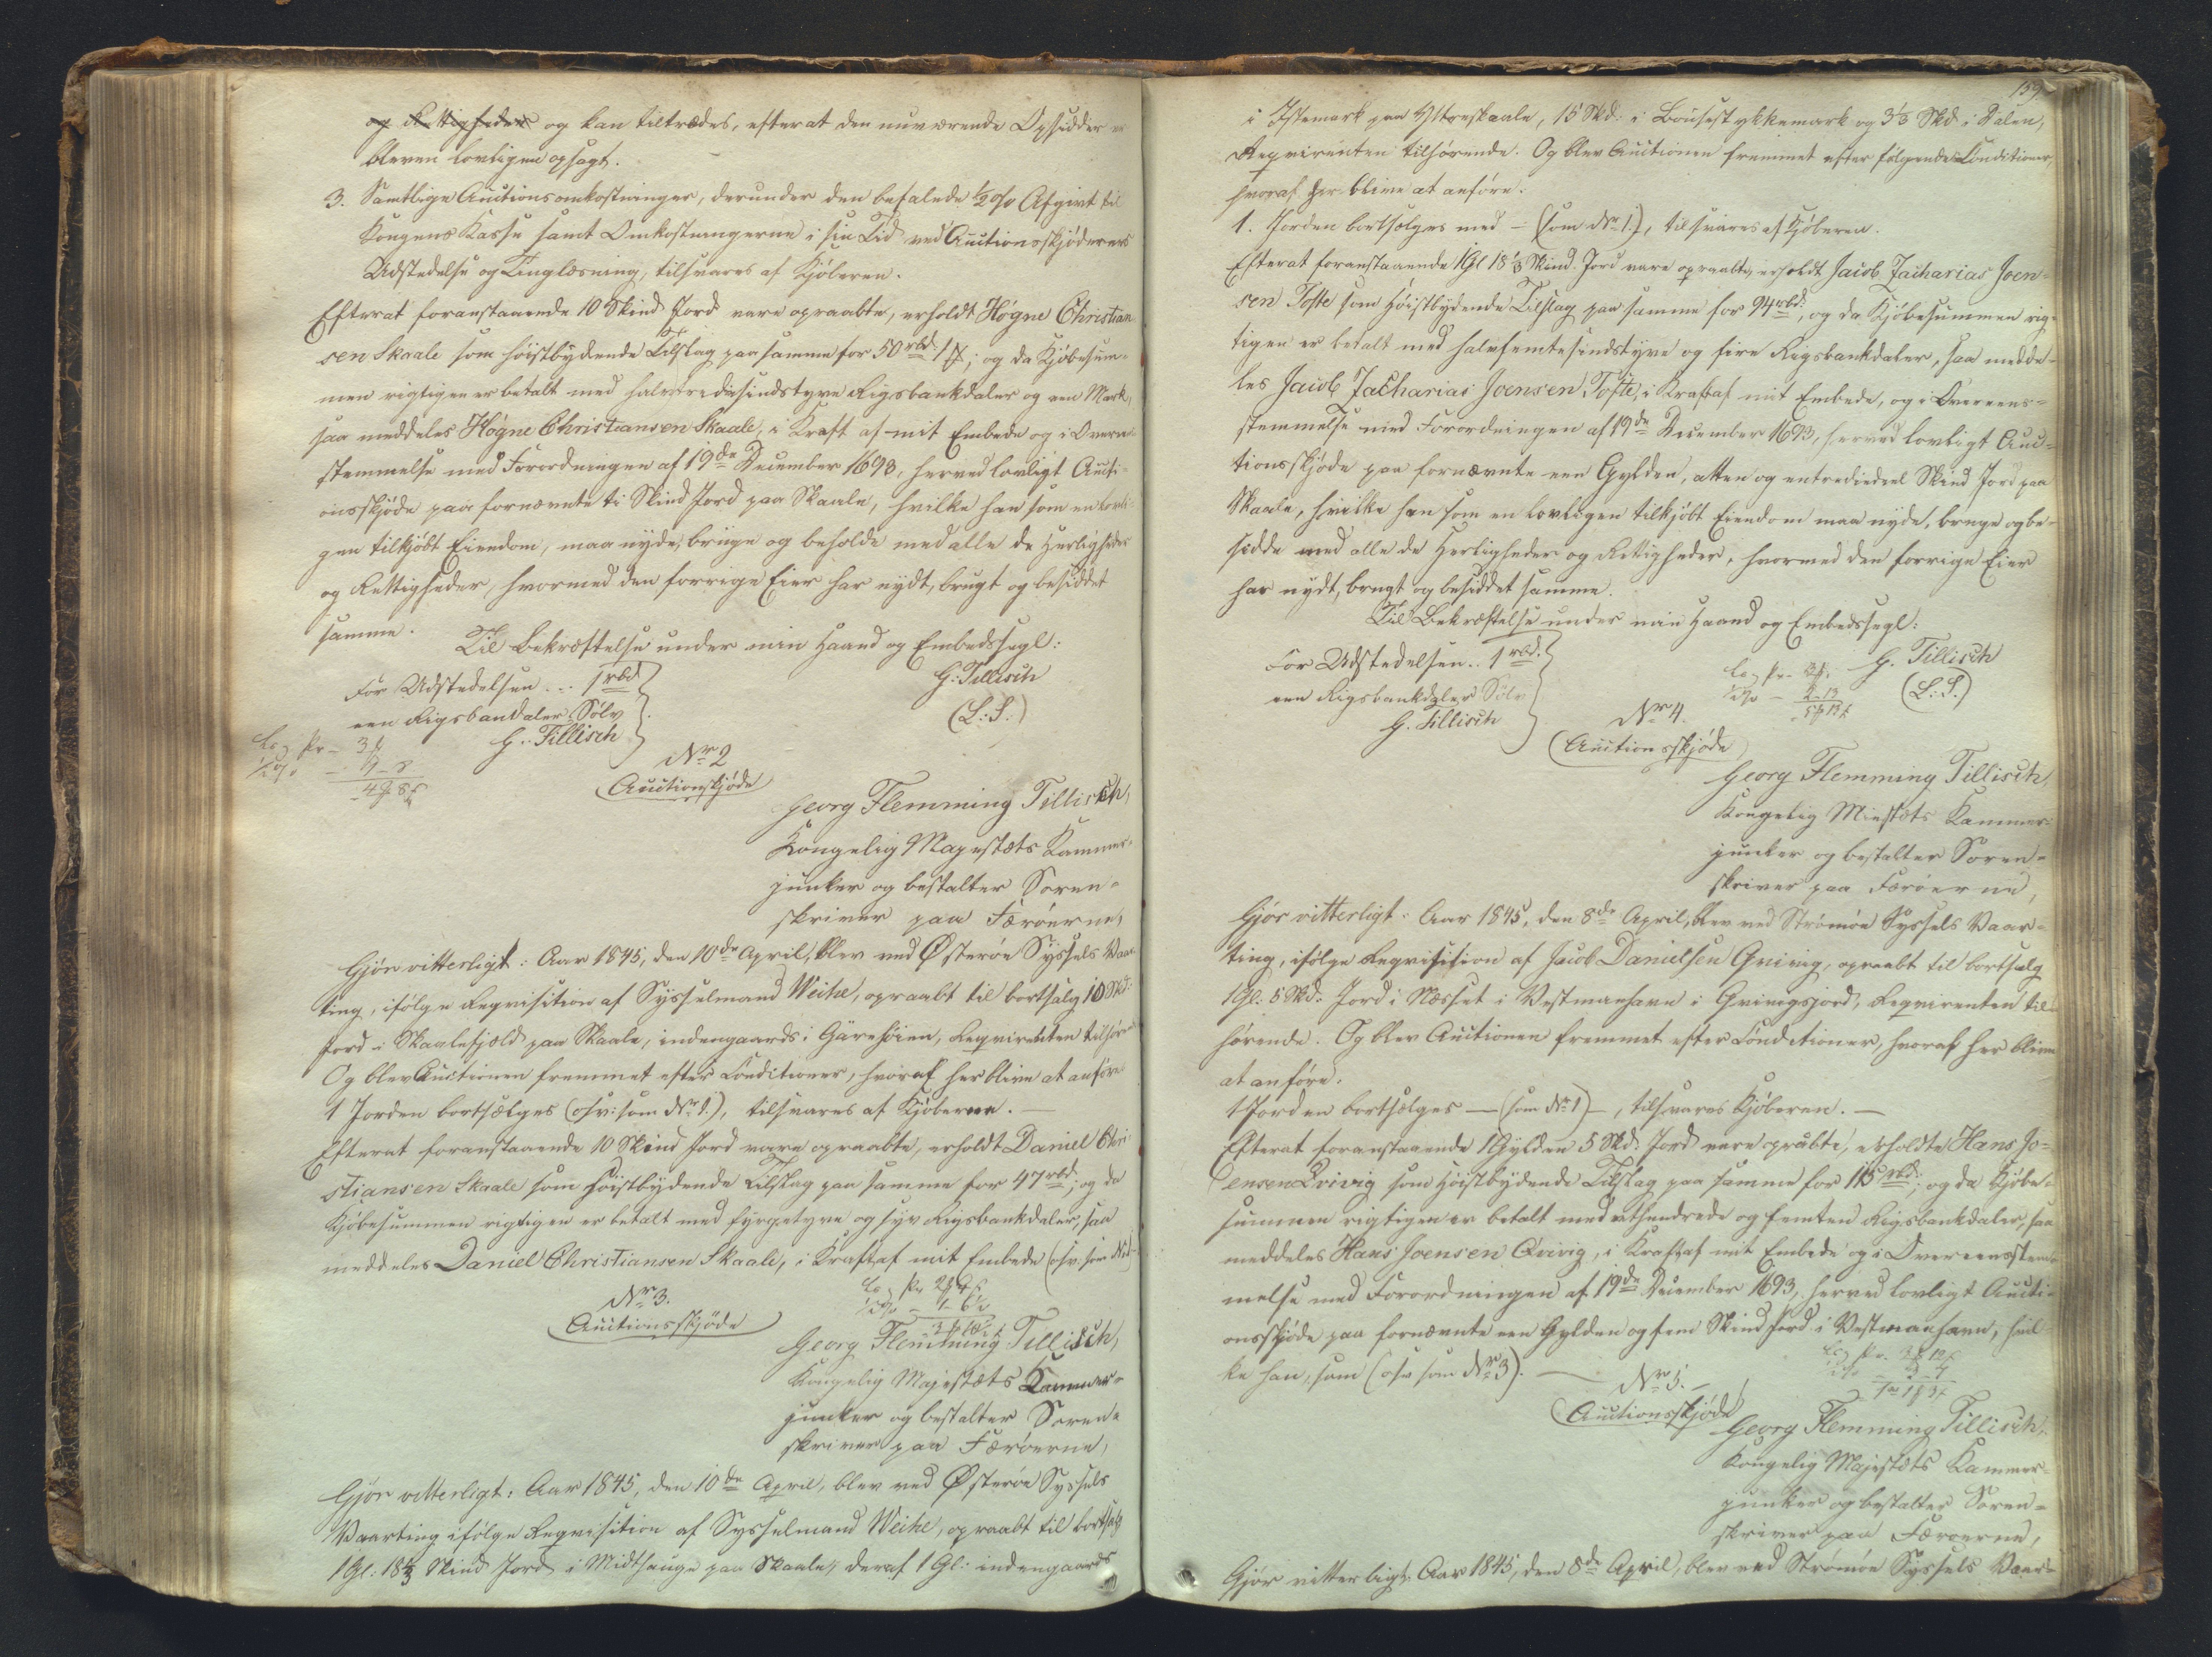 og Rettigheder og kan tiltrædes, efterat den nuværende Opsidder er
bleven lovligen opsagt.
3. Samtlige Auctionsomkostninger, derunder den befalede ½ % Afgivt til
Kongens Kasse samt Omkostningerne i sin Tid ved Auctionsskjøderers
Udstedelse og Tinglæsning, tilsvares af Kjøberen.
Efterat foranstaaende 10 Skind Jord vare opraabte, erholdt Høgne Christian
sen Skaale som høistbydende Tilslag paa samme for 50 rbd. 1 ; og da Kjøbesum-
men rigtigen er betalt med halvtredsindstyve Rigsbankdaler og een Mark,
saa meddeles Høgne Christiansen Skaale, i Kraft af mit Embede og i Overeens-
stemmelse med Forordningen af 19de December 1693, herved lovligt Aucti-
onsskjøde paa fornævnte ti Skind Jord paa Skaale, hvilke han som en lovli-
gen tilkjøbt Eiendom, maa nyde, bruge og beholde med alle de Herligheder
og Rettigheder, hvormed den forrige Eier har nydt, brugt og besiddet
samme.
Til Bekræftelse under min Haand og Embedssegl:
For Udstedelsen .. 1 rbd
G. Tillisch
een Rigsbandaler Sølv
(L. S.)
G. Tillisch
½ %
Nr 2
Auctionsskjøde
Georg Flemming Tillisch,
Kongelig Mayestæts Kammer-
junker og bestalter Soren-
skriver paa Færøerne,
Gjør vitterligt: Aar 1845, den 10de April, blev ved Østerøe Syssels Vaar-
ting, ifølge Reqvisition af Sysselmand Weihe, opraabt til bortsalg 10 Skd.
Jord i Skaalefjæld paa Skaale, indengaards i Gärehøien, Reqvirenten tilhør
Og blev Auctionen fremmet efter Conditioner, hvoraf her blive at anføre
1 Jorden bortsælges (osv: som Nr 1.), tilsvares af Kjøberne.
Efterat foranstaaende 10 Skind Jord vare opraabte, erholdt Daniel Chri-
stiansen Skaale som høistbydende Tilslag paa samme for 47 rbd; og da
Kjøbesummen rigtigen er betalt med fyrgetyve og syv Rigsbankdaler, saa
meddeles Daniel Christiansen Skaale, i Kraft af mit Embede (osv. som Nr 1)
Nr 3.
Auctionsskjøde
Georg Flemming Tillisch,
Kongelig Majestæts Kammer-
junker og bestalter Soren-
skriver paa Færøerne,
Gjør vitterligt: Aar 1845, den 10de April, blev ved Østerøe Syssels
Vaarting ifølge Reqvisition af Sysselmand Weihe, opraabt til bortsalg
1 Gl: 18⅓ Skind Jord i Midthauge paa Skaale, deraf 1 Gl: indengaards
159
i paa Yttreskaale, 15 Skd: i og 3⅓ Skd i Dalen,
Reqvirenten tilhørende. Og blev Auctionen fremmet efter følgende Conditioner,
hvoraf her blive at anføre.
1. Jorden bortsælges med – (som Nr 1.), tilsvares af Kjøberen.
Efterat foranstaaende 1 Gl 18⅓ Skind Jord vare opraabte, erholdt Jacob Zacharias Joen-
sen Tofte som høistbydende Tilslag paa samme for 94 rbd:, og da Kjøbesummen rig-
tigen er betalt med halvfemtesindstyve og fire Rigsbankdaler, saa medde-
les Jacob Zacharias Joensen Tofte, i Kraft af mit Embede, og i Overeens-
stemmelse med Forordningen af 19de December 1693, herved lovligt Auc-
tionsskjøde paa fornævnte een Gylden, atten og entrediedeel Skind Jord paa
Skaale, hvilke han som en lovligen tilkjøbt Eiendom maa nyde, bruge og be-
sidde med alle de Herligheder og Rettigheder, hvormed den forrige Eier
har nydt, brugt og besiddet samme.
Til Bekræftelse under min Haand og Embedssegl:
For Udstedelsen .. 1 rbd.
G. Tillisch
een Rigsbankdaler Sølv
(L. S.)
G. Tillisch
½ %
Nr 4.
Auctionsskjøde
Georg Flemming Tillisch,
Kongelig Kammer-
junker og bestalter Soren-
skriver paa Færøerne,
Gjør vitterligt: Aar 1845, den 8de April, blev ved Strømøe Syssels Vaar-
ting, ifølge Reqvisition af Jacob Danielsen Qvivig, opraabt til bortsalg
1 Gl: 5 Skd: Jord i Næsset i Vestmanhavn i Qvivigsjord, Reqvirenten til-
hørende. Og blev Auctionen fremmet efter Conditioner, hvoraf her blive
at anføre.
1 Jorden bortsælges — (som Nr 1) –, tilsvares Kjøberen. —
Efterat foranstaaende 1 Gylden 5 Skd: Jord vare opraabte, erholdte Hans Jo-
ensen Qvivig som høistbydende Tilslag paa samme for 115 rbd:; og da Kjøbe-
summen rigtigen er betalt med ethundrede og femten Rigsbankdaler, saa
meddeles Hans Joensen Qvivig, i Kraft af mit Embede og i Overeensstem-
melse med Forordningen af 19de December 1693, herved lovligt Aucti-
onsskjøde paa fornævnte een Gylden og fem Skind Jord i Vestmanhavn, hvil-
ke han, som (osv som Nr 3).
Nr 5.
Auctionsskjøde
Georg Flemming Tillisch,
Kongelig Majestæts Kammer-
junker og bestalter Soren-
skriver paa Færøerne,
Gjør vitterligt: Aar 1845, den 8de April, blev ved Strømøe Syssels Vaar-